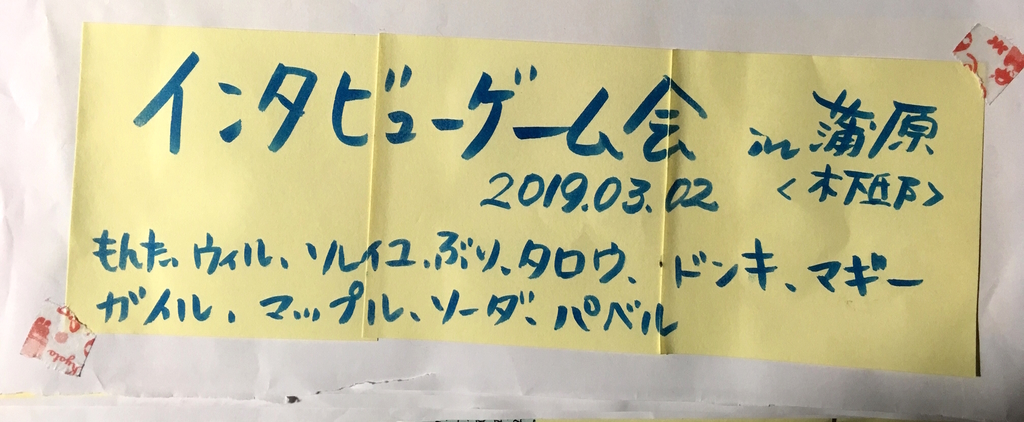 インタビューゲーム会 in 蒲原
2019.03.02 <木下邸>
もんた、ウィル、ソレイユ、ぶり、タロウ、ドンキ、マギー
ガイル、マップル、ソーダ、パベル
Kyoto